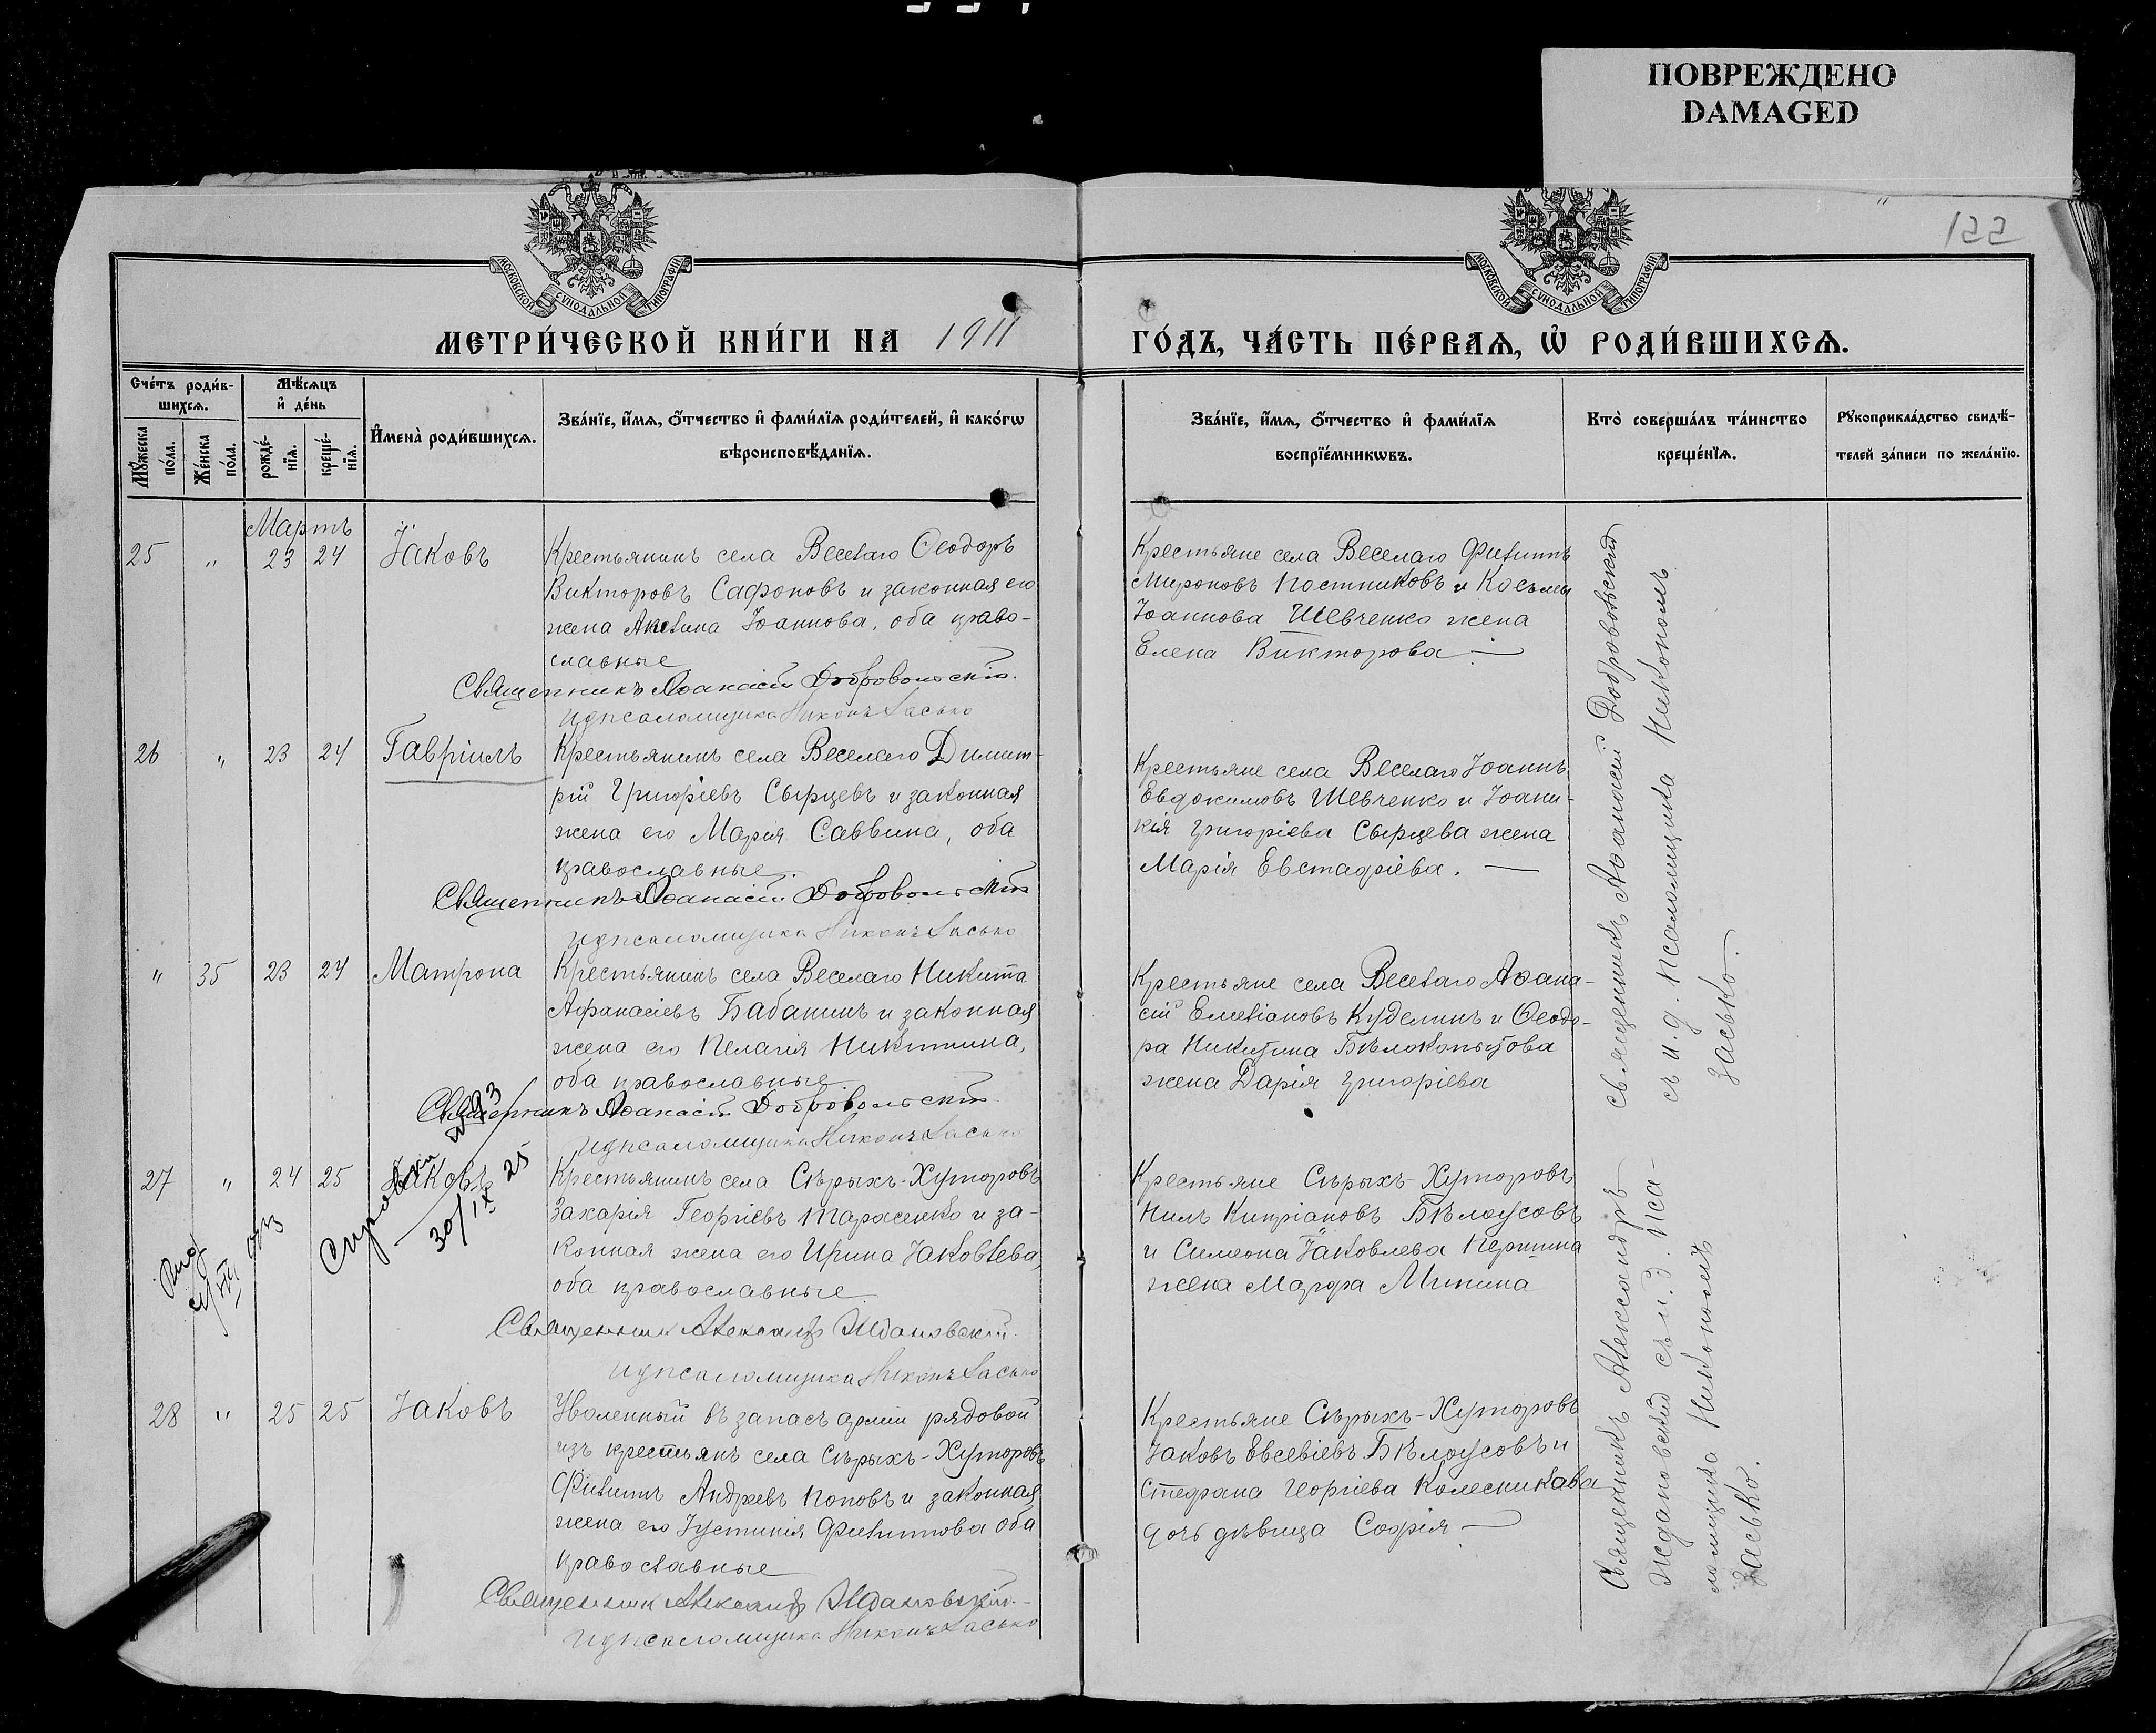 ПОВРЕЖДЕНО
DAMAGED
122
МОСКОВСКОЙ СУНОДАЛЬНОЙ ТИПОГРАФІИ
МОСКОВСКОЙ СУНОДАЛЬНОЙ ТИПОГРАФІИ
МЕТРИ́ЧЕСКОЙ КНИ́ГИ НА 1911
ГО́ДЪ, ЧА́СТЬ ПЕ́РВАѦ, Ѡ҆ РОДИ́ВШИХСѦ.
Сче́тъ роди́в-
шихсѧ.
Мꙋ́жеска
по́ла.
Же́нска
по́ла.
Мѣ́сѧцъ
и҆ де́нь
рожде́-
нїѧ.
креще́-
нїѧ.
И҆мена̀ роди́вшихсѧ.
Зва́нїе, и҆́мѧ, ѻ҆́тчество и҆ фами́лїѧ роди́телей, и҆ како́гѡ
вѣроисповѣ́данїѧ.
Зва́нїе, и҆́мѧ, ѻ҆́тчество и҆ фами́лїѧ
воспрїе́мникѡвъ.
Кто̀ соверша́лъ та́инство
креще́нїѧ.
Рꙋкоприкла́дство свидѣ́-
телей за́писи по жела́нїю.
Мартъ
25 " 23 24 Іаковъ
Крестьянинъ села Веселаго Ѳеодоръ
Викторовъ Сафоновъ и законная его
жена Акелина Іоаннова, оба право-
славные
Священникъ Аѳанасій Добровольскій.
И д псаломщика Никонъ Засько
Крестьяне села Веселаго Филиппъ
Мироновъ Постниковъ и Косьмы
Іоаннова Шевченко жена
Елена Викторова —
26 " 23 24 Гавріилъ
Крестьянинъ села Веселаго Димит-
рій Григоріевъ Сырцевъ и законная
жена его Марія Саввина, оба
православные.
Священникъ Аѳанасій Добровольскій
И д псаломщика Никонъ Засько
Крестьяне села Веселаго Іоаннъ
Евдокимовъ Шевченко и Іоани-
кія Григоріева Сырцева жена
Марія Евстафіева. —
" 35 23 24 Матрона
Крестьянинъ села Веселаго Никита
Афанасіевъ Бабанинъ и законная
жена его Пелагія Никитина,
оба православные.
Священникъ Аѳанасій Добровольскій
И д псаломщика Никонъ Засько
Крестьяне села Веселаго Аѳана-
сій Емеліановъ Куделинъ и Ѳеодо-
ра Никитина Бѣлокопытова
жена Дарія Григоріева
Священникъ Аѳанасій Добровольскій
съ и. д. псаломщика Никономъ
Засько.
27 " 24 25 Іаковъ
30/IX 25
Крестьянинъ села Сѣрыхъ-Хуторовъ
Захарія Георгіевъ Тарасенко и за-
конная жена его Ирина Іаковлева,
оба православные
Священникъ Александръ Ждановскій.
И д псаломщика Никонъ Засько
Крестьяне Сѣрыхъ-Хуторовъ
Нилъ Кипріановъ Бѣлоусовъ
и Симеона Іаковлева Першина
жена Марфа Минина
28 " 25 25 Іаковъ
Уволенный въ запасъ арміи рядовой
изъ крестьянъ села Сѣрыхъ-Хуторовъ
Филиппъ Андреевъ Поповъ и законная
жена его Іустинія Филиппова оба
православные
Священникъ Александръ Ждановскій.
И д псаломщика Никонъ Засько
Крестьяне Сѣрыхъ-Хуторовъ
Іаковъ Евсевіевъ Бѣлоусовъ и
Стефана Георгіева Колесникова
дочь дѣвица Софія —
Священникъ Александръ
Ждановскій съ и. д. Пса-
ломщика Никономъ
Засько.